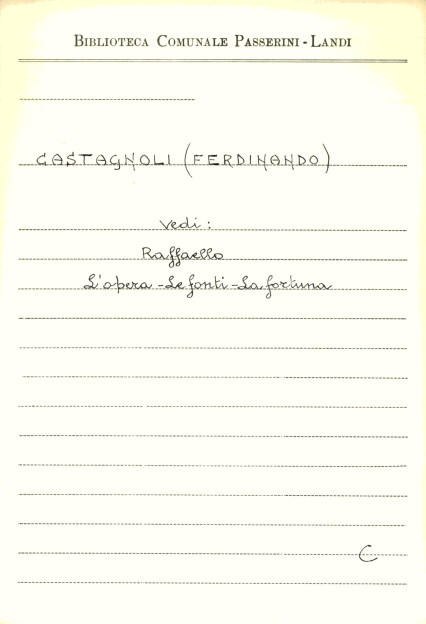 BIBLIOTECA COMUNALE PASSERINI - LANDI
CASTAGNOLI (FERDINANDO)
Vedi :
Raffaello
L'opera - Le fonti - La fortuna
C